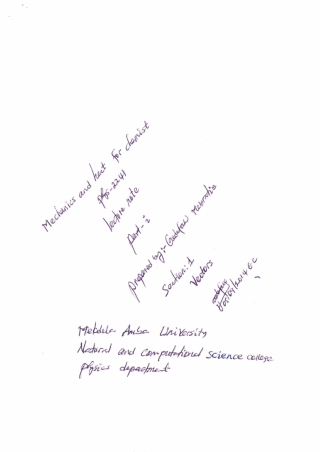 Mechanics and heat For chemist
phy-2241
lecture note
part-i
Prepared by:-
Section: 1
Vectors
Mekdela Amba University
Natural and computational science college
physics department